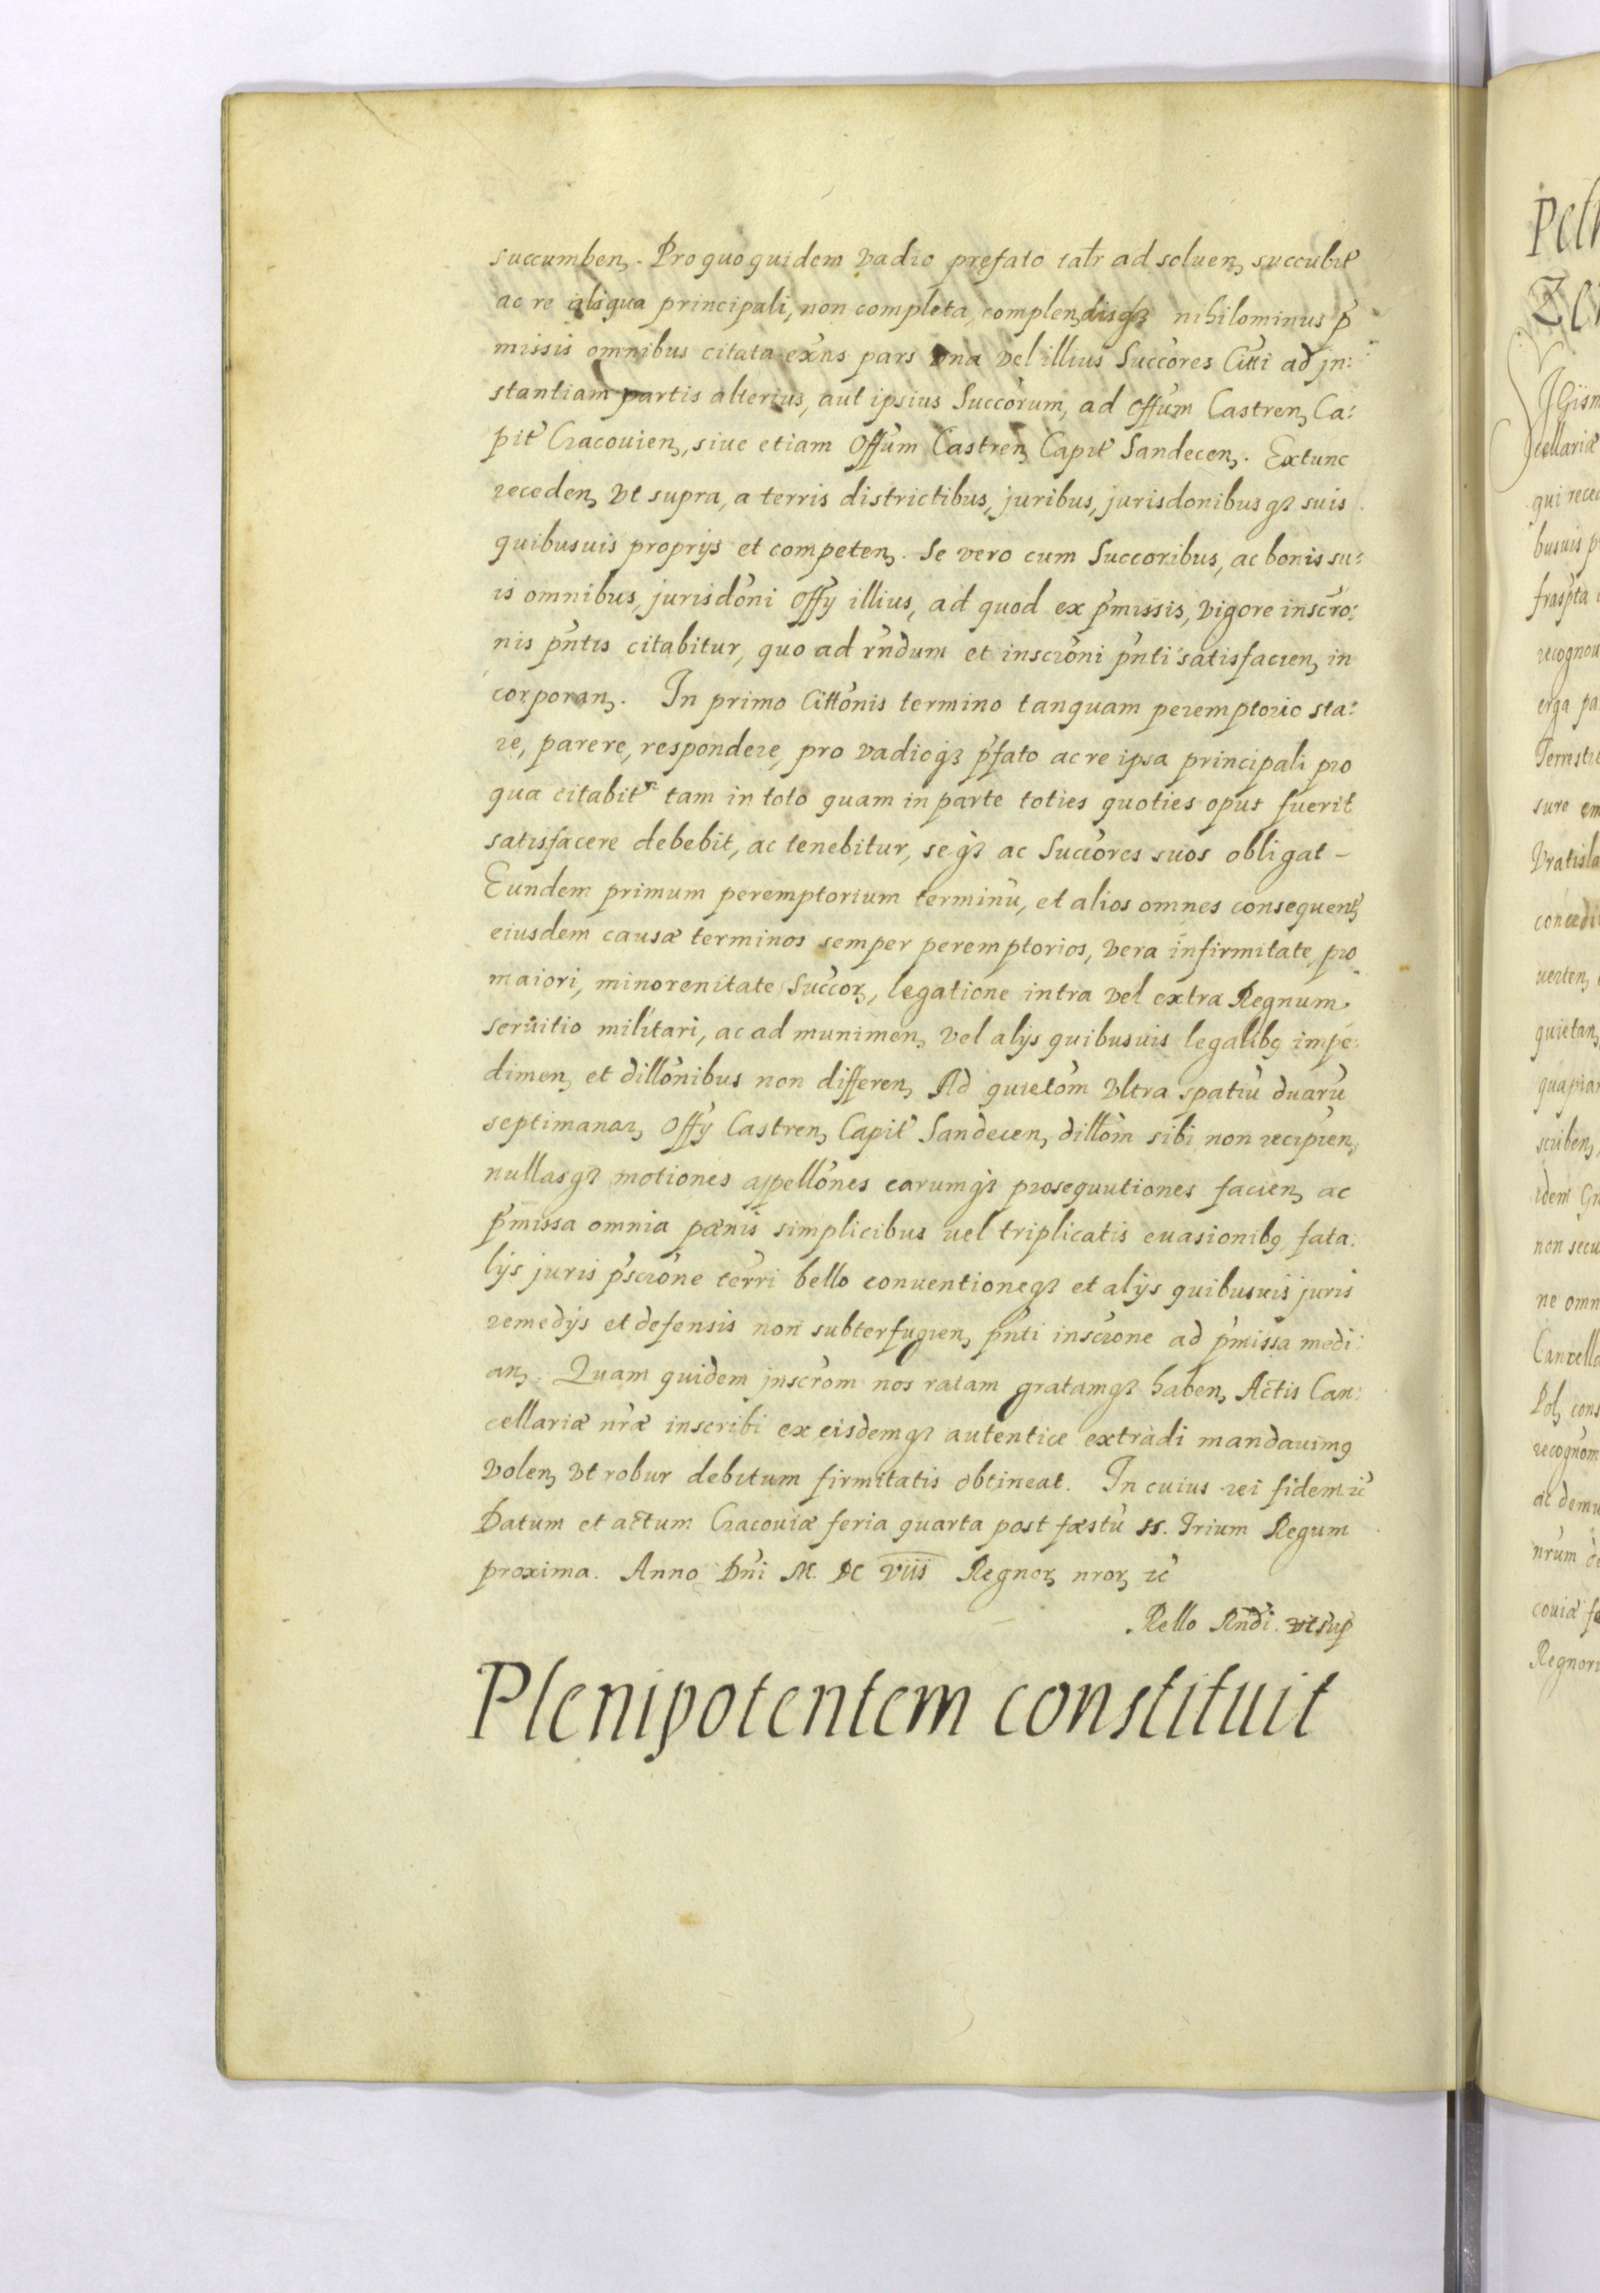 succumben. Pro quo quidem vadio prefato talr ad soluen, succubit
ac re aliqua principali, non completa, complendisq3 nihilominus p̃
missis omnibus citata exñs pars vna vel illius Succores Citti ad jn:
stantiam partis alterius, aut ipsius Succorum, ad Offum Castren, Ca:
pit Cracouien, siue etiam Offum Castren, Capit Sandecen. Extunc
receden, vt supra, a terris districtibus, juribus, jurisdonibusq3 suis
quibusuis proprijs et competen. Se vero cum Succoribus, ac bonis su:
is omnibus, jurisdoni Offy illius, ad quod ex p̃missis, vigore inscro:
nis pñtis citabitur, quo ad rñdum et inscroni pñti satisfacien, in
corporan. In primo Cittonis termino tanquam peremptorio sta:
re, parere, respondere, pro vadioq3 p̃fato ac re ipsa principali pro
qua citabitr tam in toto quam in parte toties quoties opus fuerit
satisfacere debebit, ac tenebitur, seq3 ac Succores suos obligat –
Eundem primum peremptorium terminũ, et alios omnes consequent
eiusdem causæ terminos semper peremptorios, vera infirmitate, pro
maiori, minorenitate Succor, legatione intra vel extra Regnum
seruitio militari, ac ad munimen, vel alijs quibusuis legalibq impe:
dimen, et dillonibus non differen, Ad quietom vltra spatiũ duarũ
septimanar, Offy Castren, Capit Sandecen, dillom sibi non recipien,
nullasq3 motiones appellones earumq3 prosequutiones facien, ac
p̃missa omnia pænis simplicibus uel triplicatis euasionibq, fata:
lijs juris p̃scrone terri bello conuentioneq3 et alijs quibusuis juris
remedijs et defensis non subterfugien, pñti inscrone ad p̃missa medi:
an, Quam quidem jnscrom nos ratam gratamq3 haben, Actis Can:
cellariæ nræ inscribi ex eisdemq3 autentice extradi mandauimq
volen, vt robur debitum firmitatis obtineat. In cuius rei fidem rc
Datum et actum Cracouiæ feria quarta post fæstũ ss. Trium Regum
proxima. Anno Dni M. DC viii Regnor, nror, rc
Rello Rndi. vt sup
Plenipotentem constituit